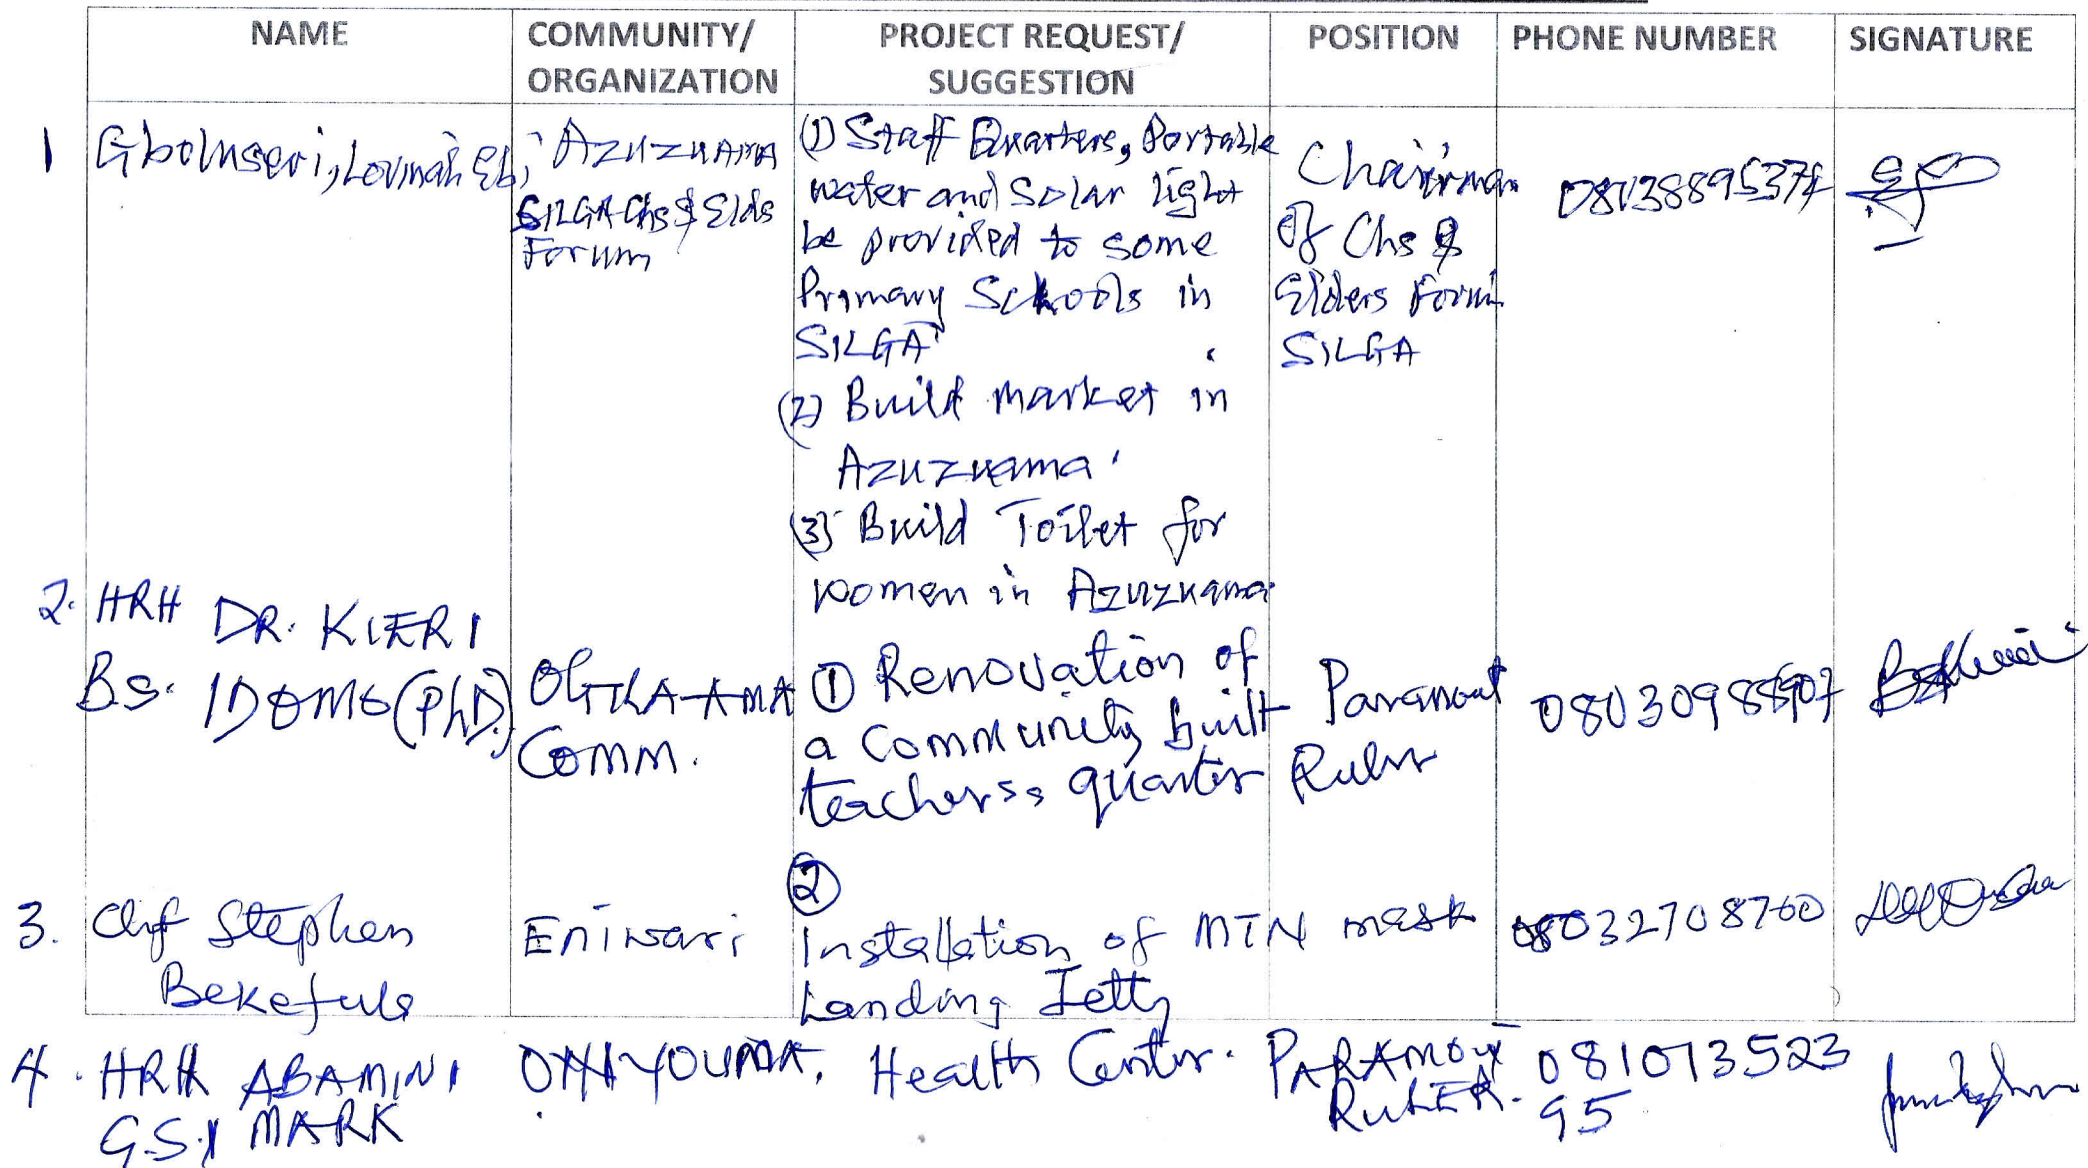 NAME COMMUNITY/ PROJECT REQUEST/ POSITION PHONE NUMBER SIGNATURE
ORGANIZATION SUGGESTION
1 Azuzuama
SILGA Chs & Elds
Forum
(1) Staff Quarters, Portable
water and Solar light
be provided to some
Primary Schools in
SILGA
(2) Build market in
Azuzuama
(3) Build Toilet for
women in Azuzuama
Chairman
Of Chs &
Elders Forum
SILGA
2. HRH DR. KIERI
B.S. IDOMO (PhD)
Comm.
① Renovation of
a Community built
teachers quarter
Paramout
Ruler
②
3. Chf Stephen
Eniwari
Installation of MTN mask
Landing Jetty
08032708760
4. HRH ABAMINI
G.S. MARK
Health Center.
PARAMOUT
RULER.
081073523
95